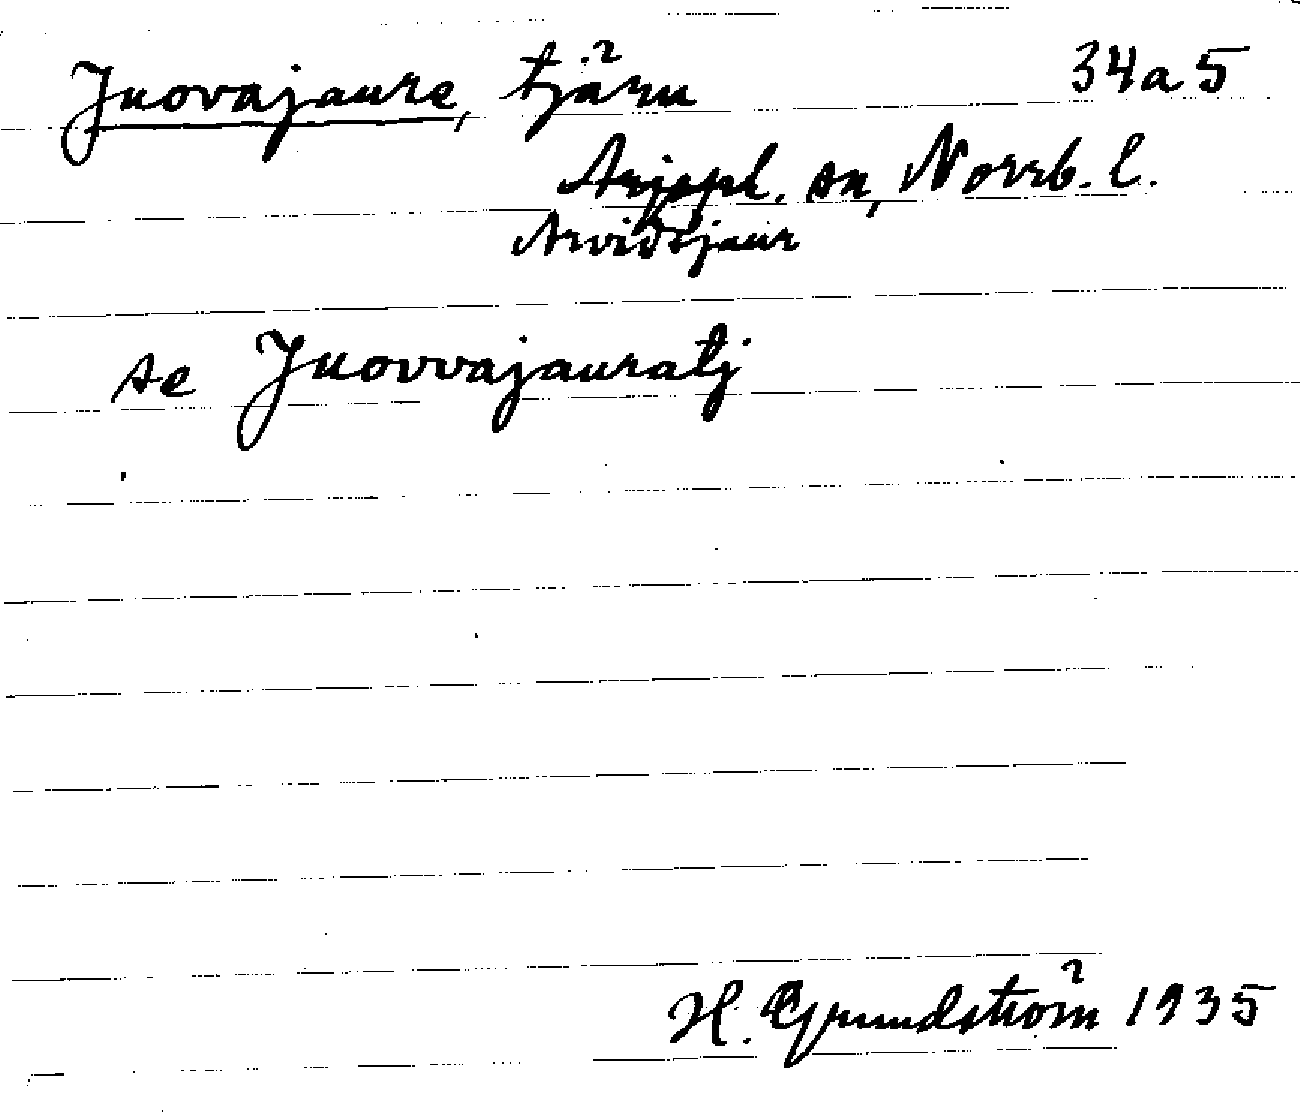 Juovajaure, tjärn 34a5
Arjepl. sn, Norrb. l.
Arvidsjaur
se Juovvajauratj
H. Grundström 1935